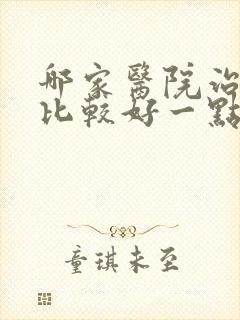 那家醫院治
比較好一點
童琪未至